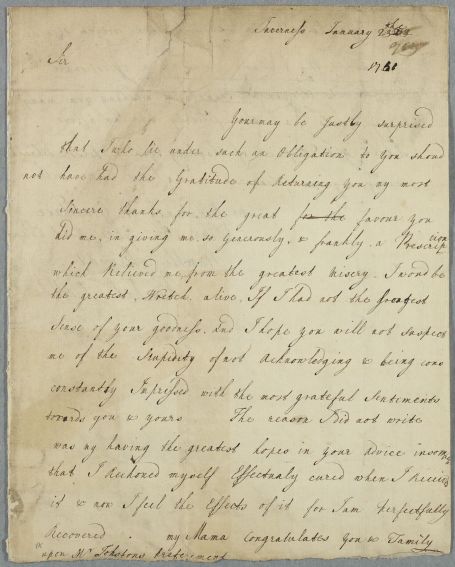 Inverness January 23d
1761
Sir
You may be Justly surprised
that I who lie under such an Obligation to you shoud
not have had the Gratitude of Returning you my most
Sincere thanks for the great for the favour you
did me, in giving me so Generously, & frankly a Prescription
which Relieved me from the greatest misery. I woud be
the greatest Wretch alive, If I had not the Greatest
Sense of your goodness. and I hope you will not suspect
me of the Stupidity of not Acknowledging & being cons
constantly Impressed with the most grateful Sentiments
towards you & yours The reason I did not write
was my having the greatest hopes in your advice insomuch
that I Reckoned myself Effectualy cured when I Received
it & now I feel the Effects of it for I am Perfectfully
Recovered. my Mama Congratulates you & Family
upon Mr Johstons